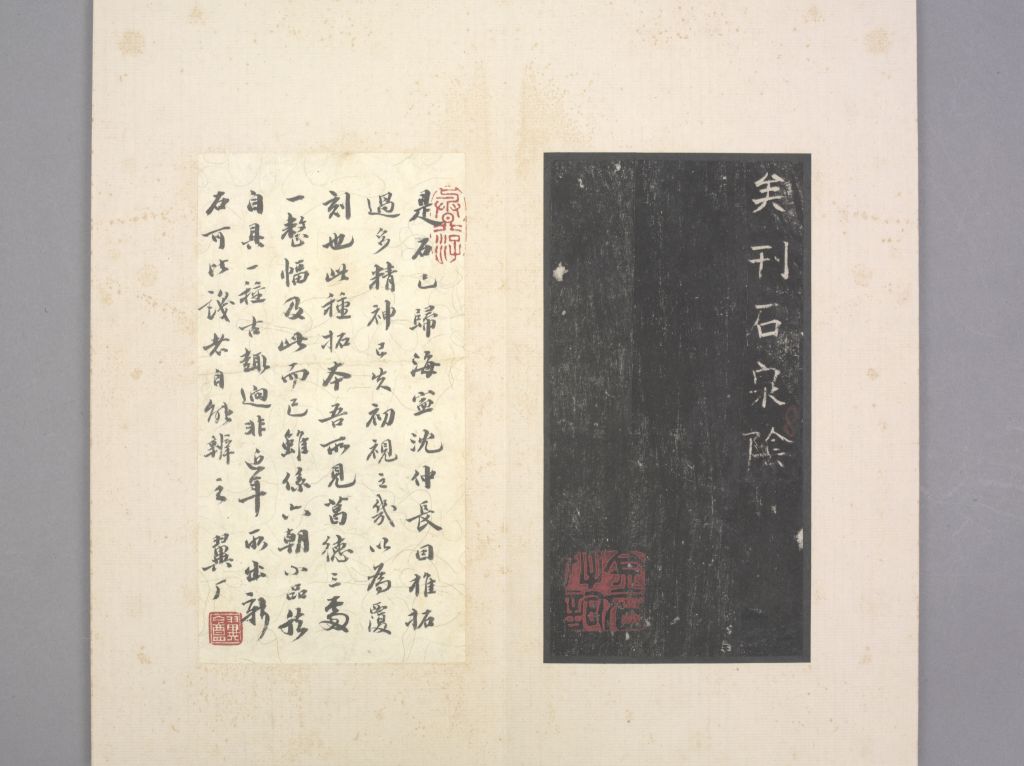 矣刊石泉陰
是石已歸海寧沈仲長因推拓
過多精神已失初視之幾以為覆
刻也此種拓本吾所見舊德三處
一整幅及此而已雖係六朝小品然
自具一種古趣迥非近年所出新
石可比識者自能辨之 翼丁